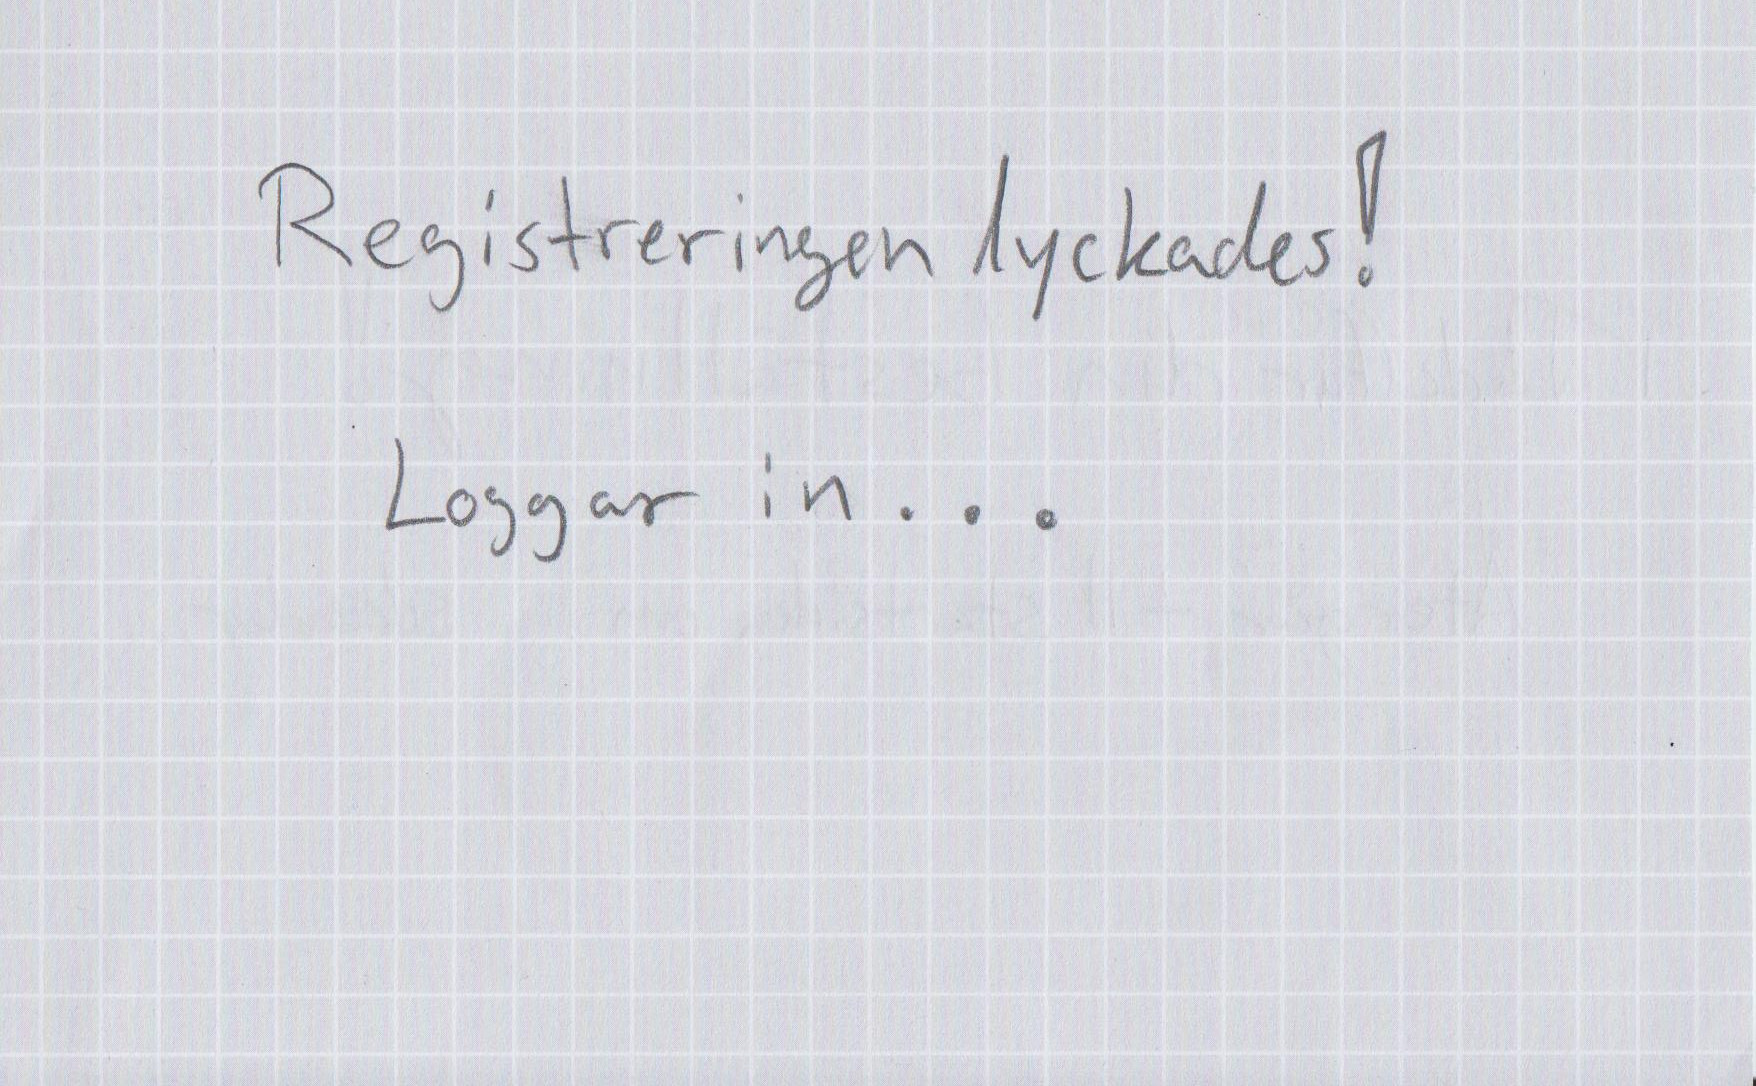 Registreringen lyckades!
Loggar in...